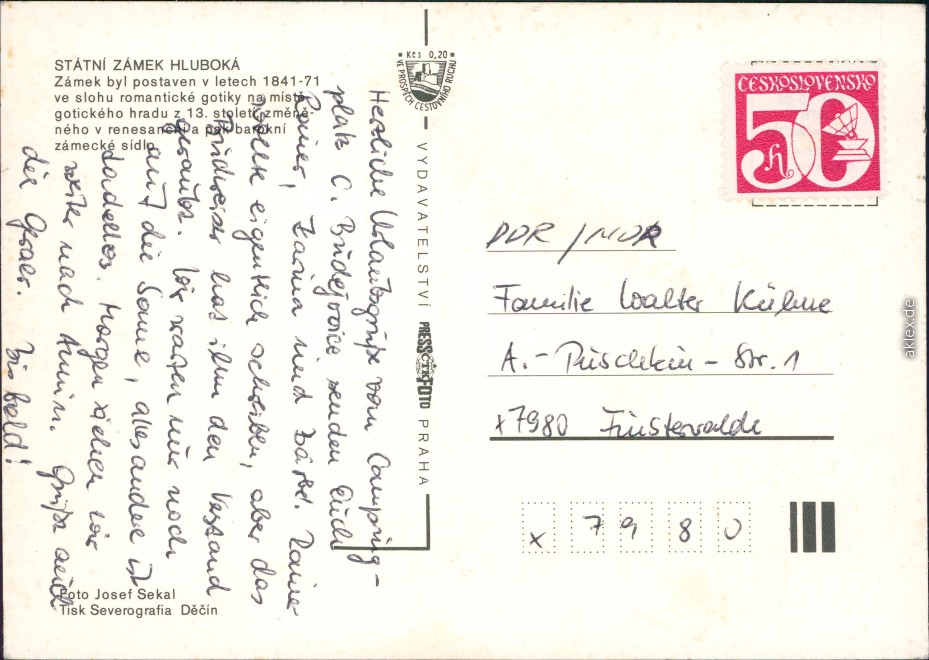 STÁTNÍ ZÁMEK HLUBOKÁ
Zámek byl postaven v letech 1841-71
ve slohu romantické gotiky na místě
gotického hradu z 13. století, změně-
ného v renesanční a pak barokní
zámecké sídlo.
Herzliche Urlaubsgrüße vom Camping-
platz C. Budějovice senden Euch
Rainer, Karina und Bärbel. Raine-
wollte eigentlich schreiben, aber das
Budweiser hat ihm den Verstand
geraubt. Wir warten nur noch
auf die Sonne, alles andere ist
tadellos. Morgen ziehen wir
weiter nach Grüße auch
der
Bis bald!
Foto Josef Sekal
Tisk Severografia Děčín
Kčs 0,20
VE PROSPĚCH CESTOVNÍHO RUCHU
VYDAVATELSTVÍ PRESSFOTO PRAHA
ČTK
ČESKOSLOVENSKO
50
h
DDR / NDR
Familie Walter Kühne
A.-Puschkin-Str. 1
x7980 Finsterwalde
x 7 9 8 0
aklex.de